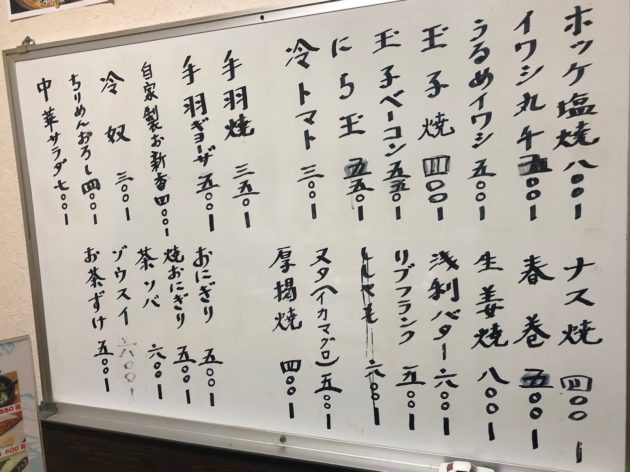 ホッケ塩焼 八〇〇ー
イワシ丸干 五〇〇ー
うるめイワシ 五〇〇ー
玉子焼 四〇〇ー
玉子ベーコン 五五〇ー
にら玉 五五〇ー
冷トマト 三〇〇ー
手羽焼 三五〇ー
手羽ギョーザ 五〇〇ー
自家製お新香 四〇〇ー
冷奴 三〇〇ー
ちりめんおろし 四〇〇ー
中華サラダ 七〇〇ー
ナス焼 四〇〇ー
春巻 五〇〇ー
生姜焼 八〇〇ー
浅利バター 六〇〇ー
リブフランク 五〇〇ー
ししゃも 六〇〇ー
ヌタ(イカマグロ) 五〇〇ー
厚揚焼 四〇〇ー
おにぎり 五〇〇ー
焼おにぎり 五〇〇ー
茶ソバ 六〇〇ー
ゾウスイ 六〇〇ー
お茶ずけ 五〇〇ー